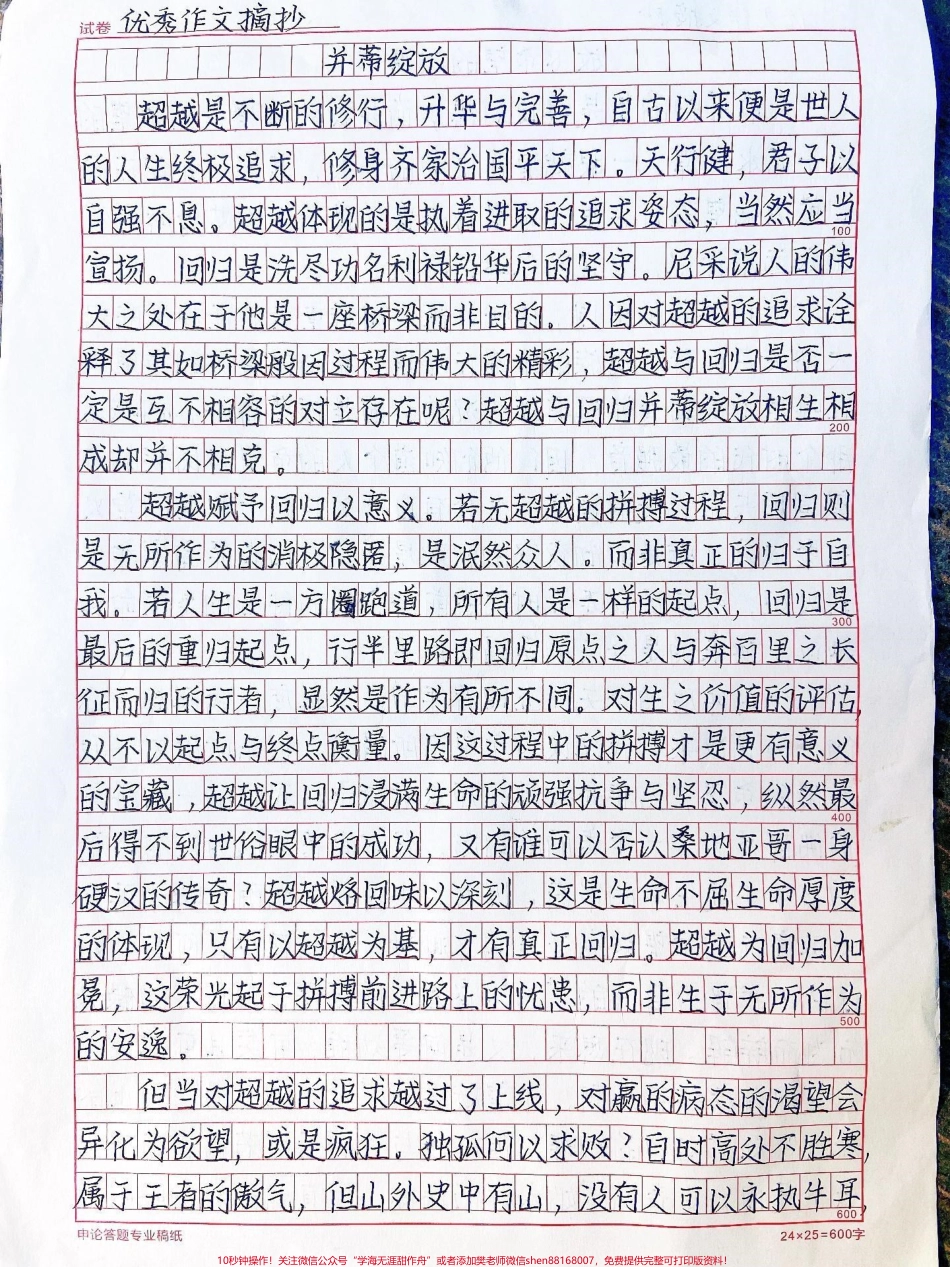 试卷 优秀作文摘抄
并蒂绽放
超越是不断的修行，升华与完善，自古以来便是世人
的人生终极追求，修身齐家治国平天下。天行健，君子以
自强不息。超越体现的是执着进取的追求姿态，当然应当
100
宣扬。回归是洗尽功名利禄铅华后的坚守。尼采说人的伟
大之处在于他是一座桥梁而非目的。人因对超越的追求诠
释了其如桥梁般因过程而伟大的精彩，超越与回归是否一
定是互不相容的对立存在呢？超越与回归并蒂绽放相生相
200
成却并不相克。
超越赋予回归以意义。若无超越的拼搏过程，回归则
是无所作为的消极隐匿，是泯然众人。而非真正的归于自
我。若人生是一方圈跑道，所有人是一样的起点，回归是
300
最后的重归起点，行半里路即回归原点之人与奔百里之长
征而归的行者，显然是作为有所不同。对生之价值的评估，
从不以起点与终点衡量。因这过程中的拼搏才是更有意义
的宝藏，超越让回归浸满生命的顽强抗争与坚忍，纵然最
400
后得不到世俗眼中的成功，又有谁可以否认桑地亚哥一身
硬汉的传奇？超越烙回味以深刻，这是生命不屈生命厚度
的体现，只有以超越为基，才有真正回归。超越为回归加
冕，这荣光起于拼搏前进路上的忧患，而非生于无所作为
500
的安逸。
但当对超越的追求越过了上线，对赢的病态的渴望会
异化为欲望，或是疯狂。独孤何以求败？自时高处不胜寒，
属于王者的傲气，但山外史中有山，没有人可以永执牛耳，
600
申论答题专业稿纸 24×25=600字
10秒钟操作！关注微信公众号“学海无涯甜作舟”或者添加樊老师微信shen88168007，免费提供完整可打印版资料！